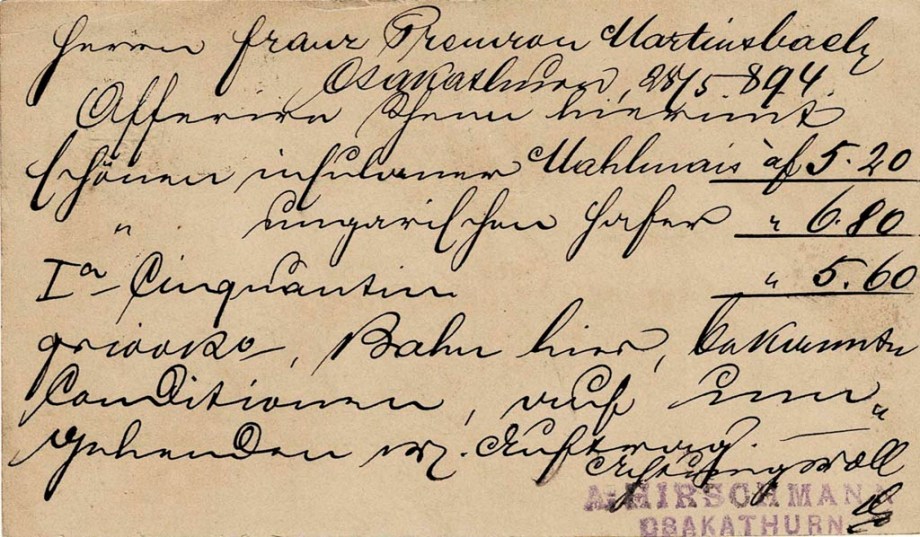 Herrn Franz Premzon Martinsbach
Csakathurn, 28/5. 894.
Offerire Ihnen hiermit
schönen insulaner Mahlmais àf 5.20
" ungarischen Hafer " 6.80
Iª Cinquantin " 5.60
franko, Bahn hier, bekannte
Conditionen, auf
gehenden w. Auftrag.
Achtungsvoll
A. HIRSCHMANN
CSAKATHURN